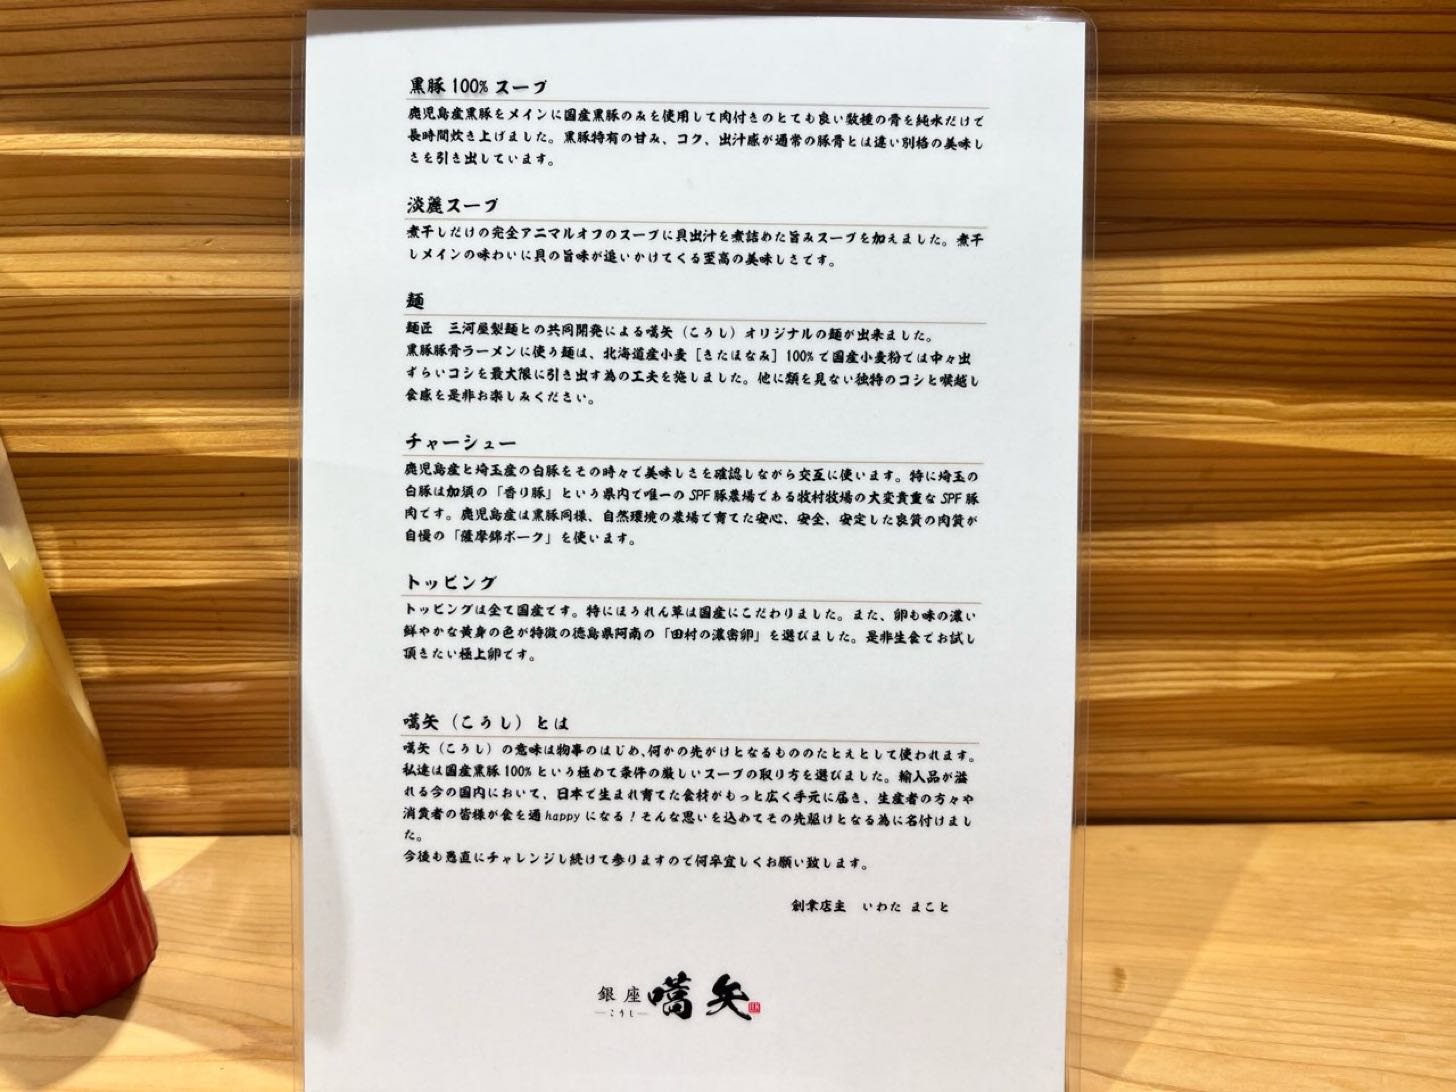 黒豚100%スープ
鹿児島産黒豚をメインに国産黒豚のみを使用して肉付きのとても良い数種の骨を純水だけで
長時間炊き上げました。黒豚特有の甘み、コク、出汁感が通常の豚骨とは違い別格の美味し
さを引き出しています。
淡麗スープ
煮干しだけの完全アニマルオフのスープに貝出汁を煮詰めた旨みスープを加えました。煮干
しメインの味わいに貝の旨味が追いかけてくる至高の美味しさです。
麺
麺匠　三河屋製麺との共同開発による嚆矢（こうし）オリジナルの麺が出来ました。
黒豚豚骨ラーメンに使う麺は、北海道産小麦［きたほなみ］100%で国産小麦粉では中々出
ずらいコシを最大限に引き出す為の工夫を施しました。他に類を見ない独特のコシと喉越し
食感を是非お楽しみください。
チャーシュー
鹿児島産と埼玉産の白豚をその時々で美味しさを確認しながら交互に使います。特に埼玉の
白豚は加須の「香り豚」という県内で唯一のSPF豚農場である牧村牧場の大変貴重なSPF豚
肉です。鹿児島産は黒豚同様、自然環境の農場で育てた安心、安全、安定した良質の肉質が
自慢の「薩摩錦ポーク」を使います。
トッピング
トッピングは全て国産です。特にほうれん草は国産にこだわりました。また、卵も味の濃い
鮮やかな黄身の色が特徴の徳島県阿南の「田村の濃密卵」を選びました。是非生食でお試し
頂きたい極上卵です。
嚆矢（こうし）とは
嚆矢（こうし）の意味は物事のはじめ、何かの先がけとなるもののたとえとして使われます。
私達は国産黒豚100%という極めて条件の厳しいスープの取り方を選びました。輸入品が溢
れる今の国内において、日本で生まれ育てた食材がもっと広く手元に届き、生産者の方々や
消費者の皆様が食を通happyになる！そんな思いを込めてその先駆けとなる為に名付けまし
た。
今後も愚直にチャレンジし続けて参りますので何卒宜しくお願い致します。
創業店主　いわた まこと
銀座 嚆矢
―こうし―